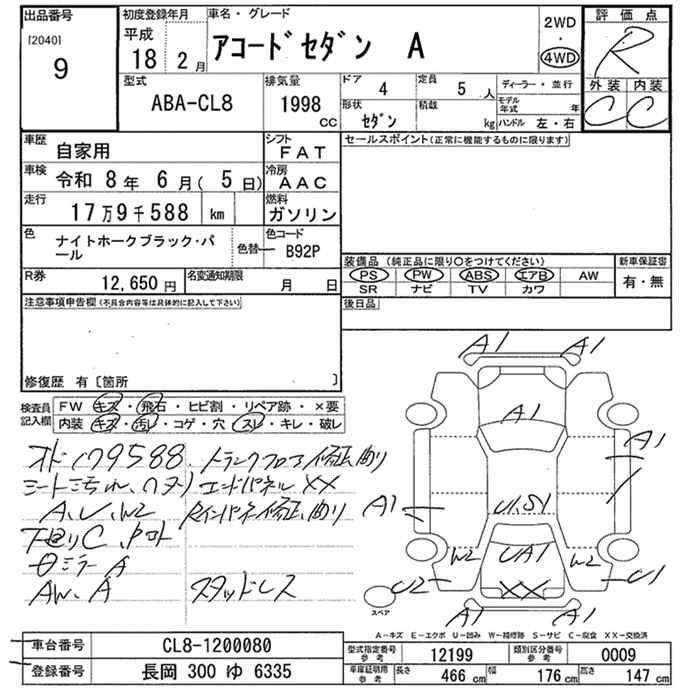 出品番号
[2040]
9
初度登録年月
平成
18年 2月
車名・グレード
アコードセダン A
2WD
・
4WD
評価点
R
外装 内装
C C
型式
ABA-CL8
排気量
1998
CC
ドア 4
定員 5 人
形状 セダン
積載 kg
ディーラー・並行
モデル年式 年
ハンドル 左・右
車歴 自家用
シフト FAT
車検 令和 8年 6月( 5日)
冷房 AAC
走行 17万9千588 km
燃料 ガソリン
色 ナイトホークブラック・パール
色替
色コード B92P
R券 12,650円
名変通知期限 月 日
セールスポイント(正常に機能するものに限ります)
装備品 (純正品に限り○をつけてください)
PS PW ABS エアB AW
SR ナビ TV カワ
新車保証書
有・無
後日品
注意事項申告欄(不具合内容等は具体的に記入して下さい)
修復歴 有〔箇所 〕
検査員記入欄
FW キズ・飛石・ヒビ割・リペア跡・×要
内装 キズ・汚レ・コゲ・穴・スレ・キレ・破レ
オド179588. トランクフロア修正、曲り
シートミちれ、ヘタリ エンドパネルXX
A、U、W2 Rインパネ修正、曲り
下廻りC、
ミラーA
AW、A スタッドレス
A1 A1
A1
A1
A1
U1.S1
W2 UA1 W2
U2 XX U1
A1 A1
スペア
A－キズ E－エクボ U－凹み W－補修跡 S－サビ C－腐食 XX－交換済
車台番号 CL8-1200080
登録番号 長岡 300 ゆ 6335
型式指定番号 参考 12199
類別区分番号 参考 0009
車庫証明用 参考 長さ 466 cm 幅 176 cm 高さ 147 cm